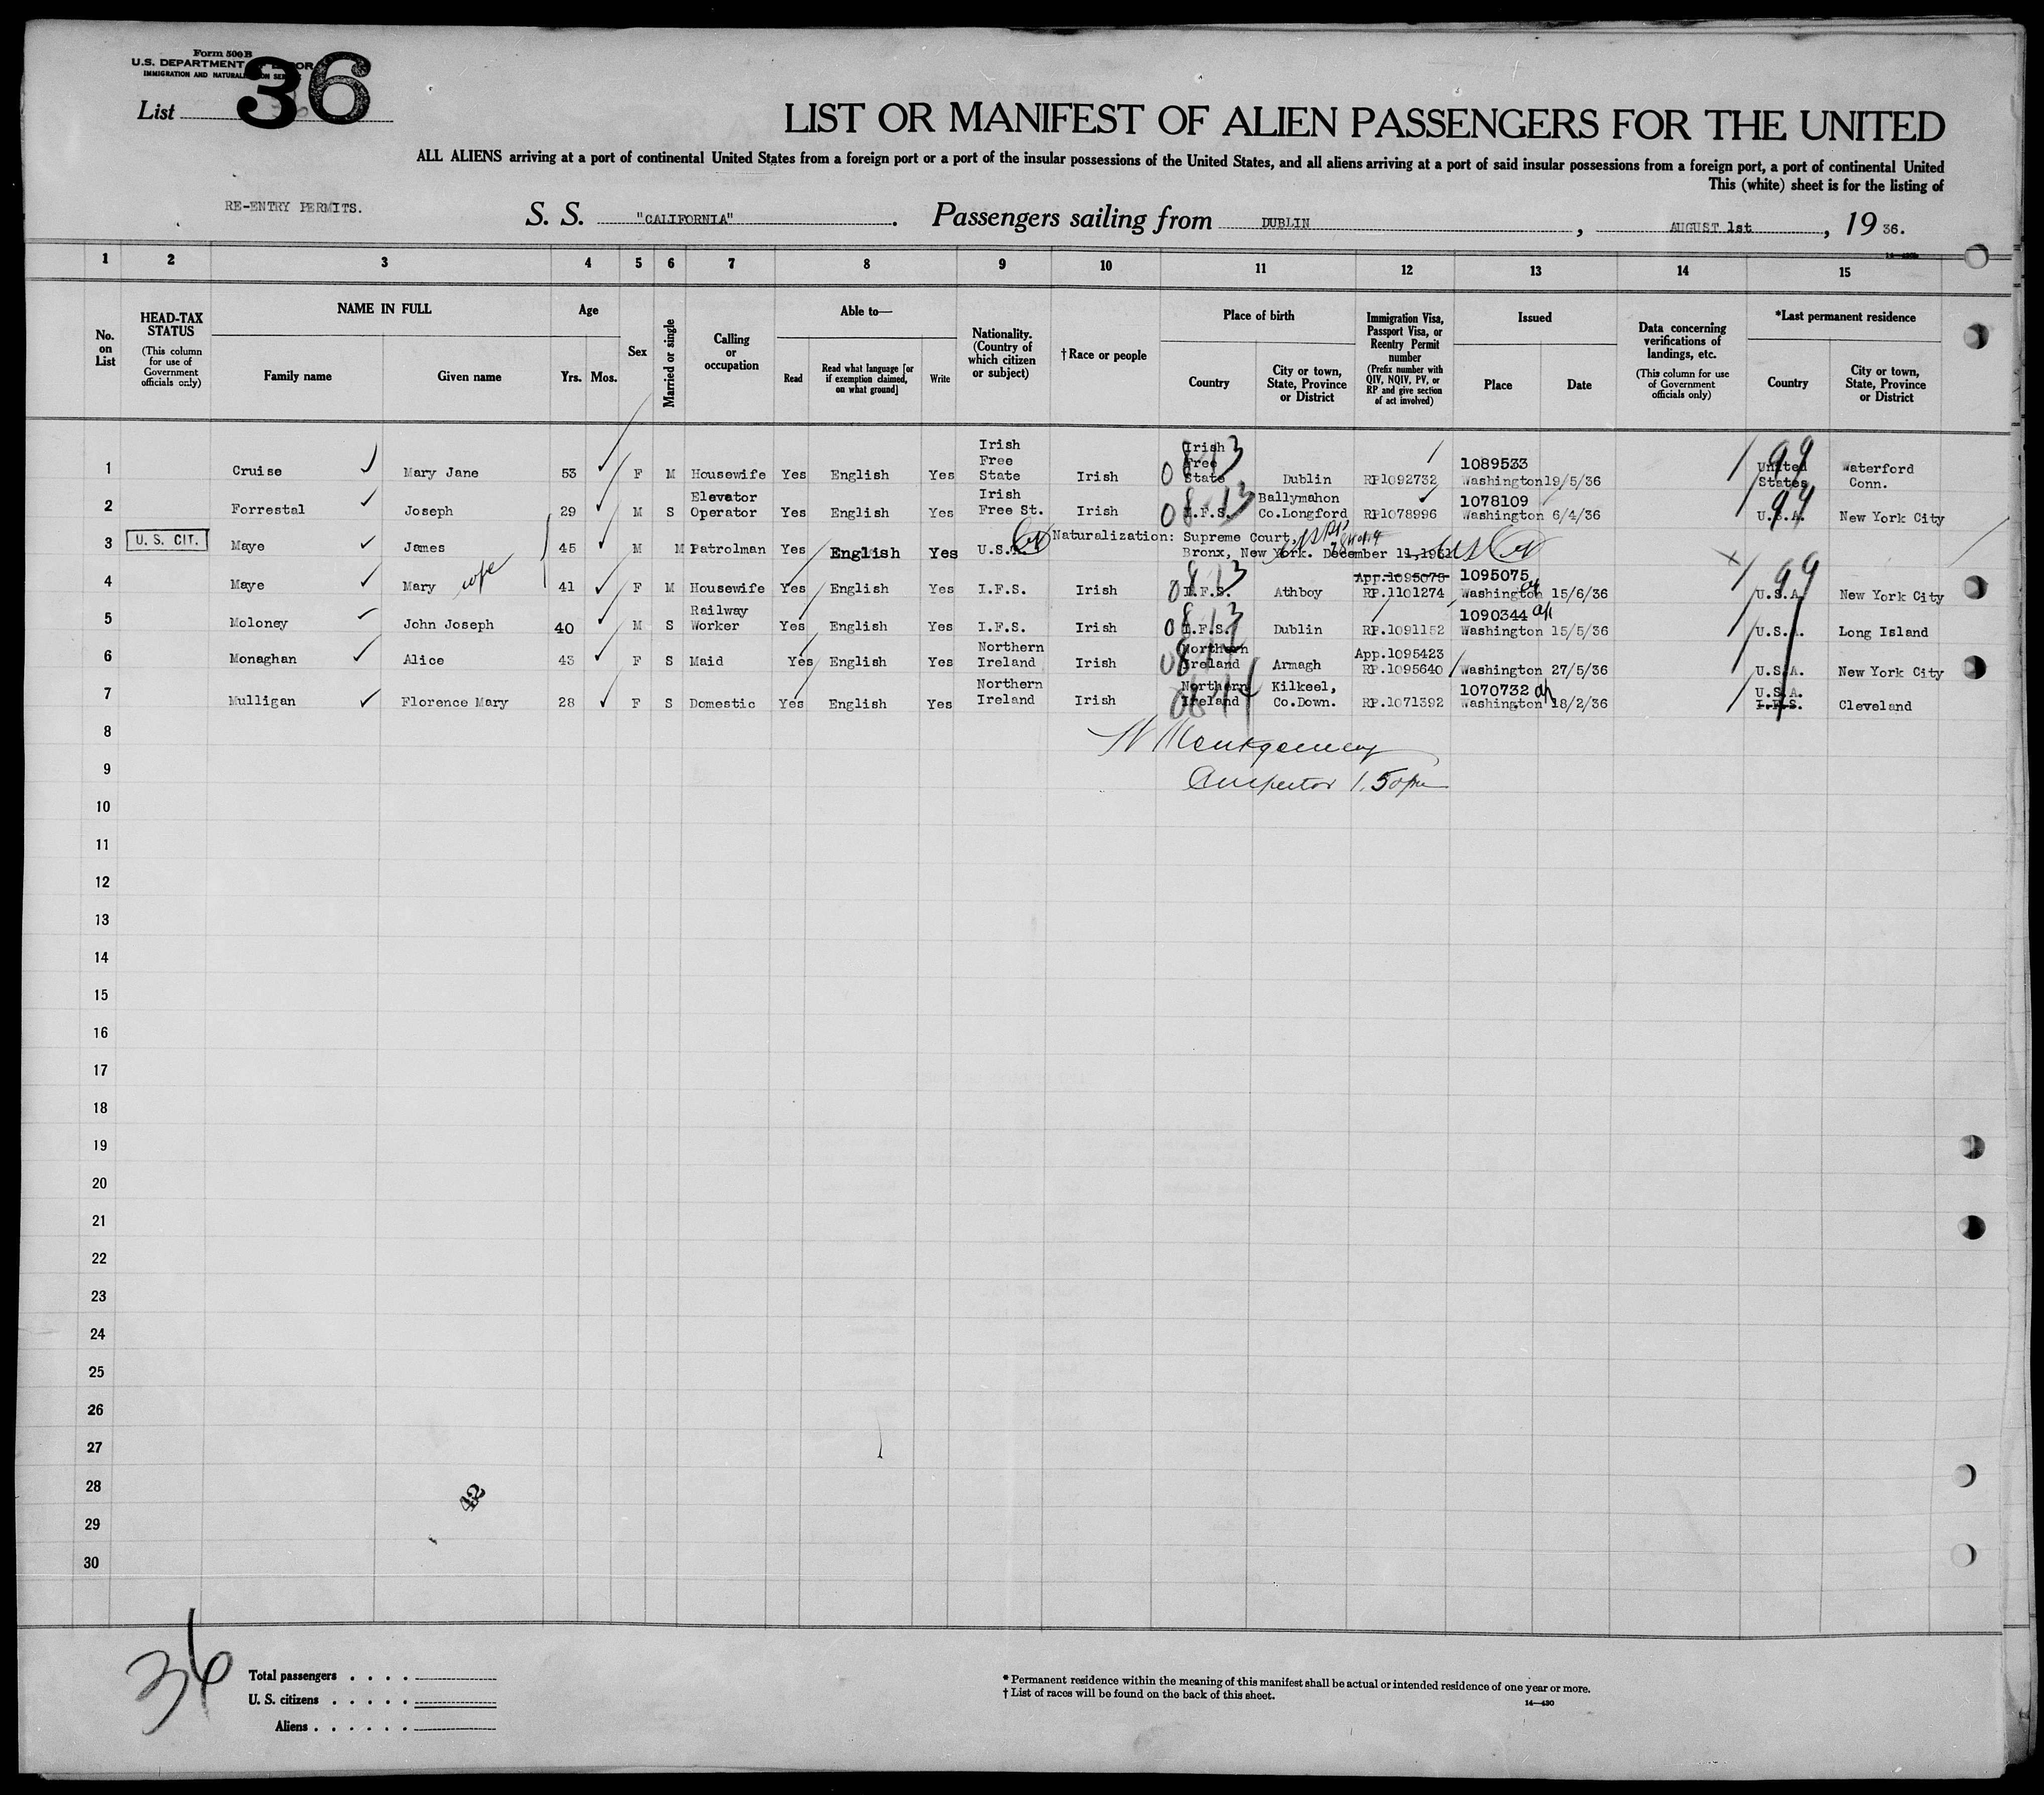 Form 500 B
U.S. DEPARTMENT
IMMIGRATION AND
List 36
LIST OR MANIFEST OF ALIEN PASSENGERS FOR THE UNITED
ALL ALIENS arriving at a port of continental United States from a foreign port or a port of the insular possessions of the United States, and all aliens arriving at a port of said insular possessions from a foreign port, a port of continental United
This (white) sheet is for the listing of
RE-ENTRY PERMITS. S. S. "CALIFORNIA". Passengers sailing from DUBLIN, AUGUST 1st, 19 36.
1 2 3 4 5 6 7 8 9 10 11 12 13 14 15
No. on List
HEAD-TAX STATUS (This column for use of Government officials only)
NAME IN FULL
Family name Given name
Age
Yrs. Mos.
Sex
Married or single
Calling or occupation
Able to—
Read Read what language [or if exemption claimed, on what ground] Write
Nationality. (Country of which citizen or subject)
†Race or people
Place of birth
Country City or town, State, Province or District
Immigration Visa, Passport Visa, or Reentry Permit number (Prefix number with QIV, NQIV, PV, or RP and give section of act involved)
Issued
Place Date
Data concerning verifications of landings, etc. (This column for use of Government officials only)
*Last permanent residence
Country City or town, State, Province or District
1 Cruise Mary Jane 53 F M Housewife Yes English Yes Irish Free State Irish Irish Free State Dublin RP1092732 1089533 Washington 19/5/36 United States Waterford Conn. 99
2 Forrestal Joseph 29 M S Elevator Operator Yes English Yes Irish Free St. Irish I.F.S. Ballymahon Co.Longford RP1078996 1078109 Washington 6/4/36 U.S.A. New York City 99
3 U. S. CIT. Maye James 45 M M Patrolman Yes English Yes U.S.A. Naturalization: Supreme Court,
Bronx, New York. December
4 Maye Mary wife 41 F M Housewife Yes English Yes I.F.S. Irish I.F.S. Athboy App.1095075 RP.1101274 1095075 Washington 15/6/36 U.S.A. New York City 99
5 Moloney John Joseph 40 M S Railway Worker Yes English Yes I.F.S. Irish I.F.S. Dublin RP.1091152 1090344 Washington 15/5/36 U.S.A. Long Island
6 Monaghan Alice 43 F S Maid Yes English Yes Northern Ireland Irish Northern Ireland Armagh App.1095423 RP.1095640 Washington 27/5/36 U.S.A. New York City
7 Mulligan Florence Mary 28 F S Domestic Yes English Yes Northern Ireland Irish Northern Ireland Kilkeel, Co.Down. RP.1071392 1070732 Washington 18/2/36 U.S.A. I.F.S. Cleveland
8 Montgomery
9 Inspector 1.50pm
10
11
12
13
14
15
16
17
18
19
20
21
22
23
24
25
26
27
28 42
29
30
36
Total passengers . . . .
U. S. citizens . . . . .
Aliens . . . . . .
* Permanent residence within the meaning of this manifest shall be actual or intended residence of one year or more.
† List of races will be found on the back of this sheet.
14—430